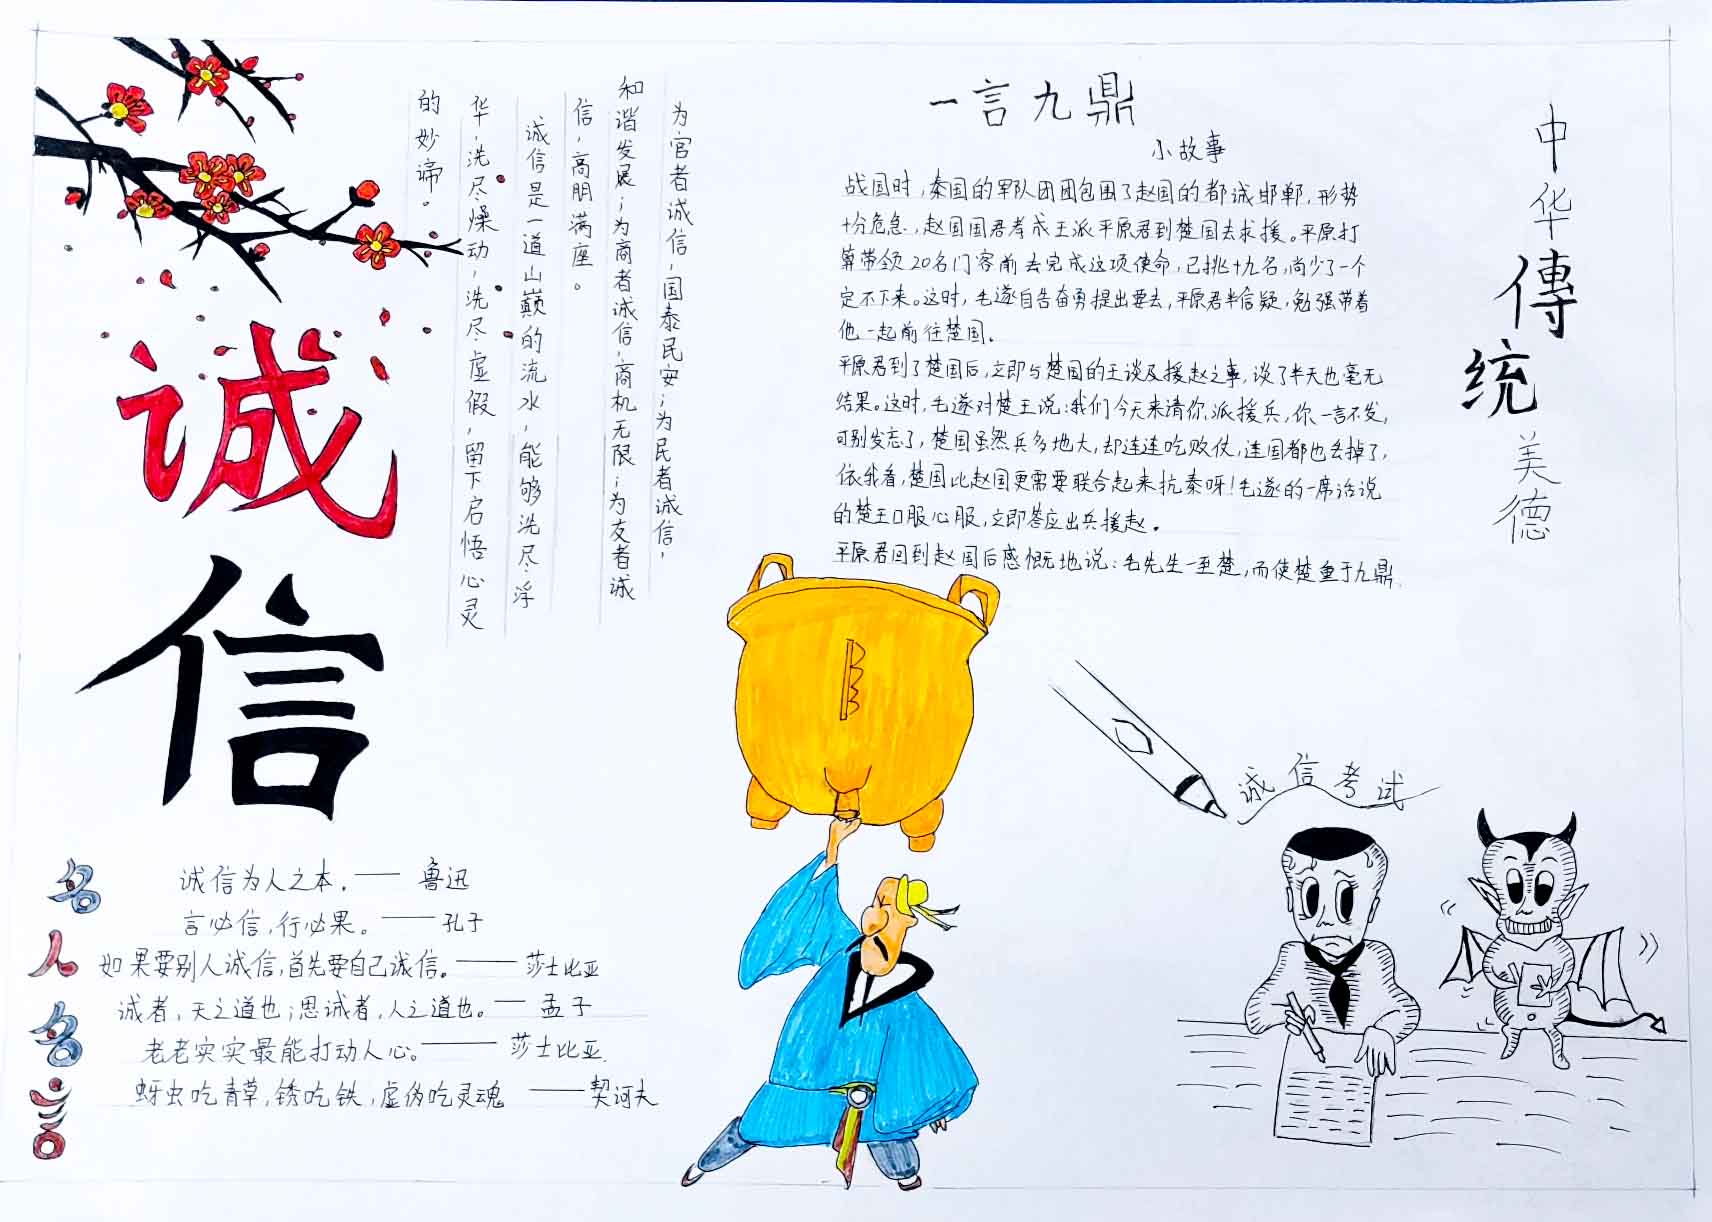 诚
信
为官者诚信，国泰民安；为民者诚信，
和谐发展；为商者诚信，商机无限；为友者诚
信，高朋满座。
诚信是一道山巅的流水，能够洗尽浮
华，洗尽燥动，洗尽虚假，留下启悟心灵
的妙谛。
一言九鼎
小故事
战国时，秦国的军队团团包围了赵国的都诚邯郸，形势
十分危急，赵国国君孝成王派平原君到楚国去求援。平原打
算带领20名门客前去完成这项使命，已挑十九名，尚少了一个
定不下来。这时，毛遂自告奋勇提出要去，平原君半信疑，勉强带着
他一起前往楚国。
平原君到了楚国后，立即与楚国的王谈及援赵之事，谈了半天也毫无
结果。这时，毛遂对楚王说：我们今天来请你派援兵，你一言不发，
可别发忘了，楚国虽然兵多地大，却连连吃败仗，连国都也丢掉了，
依我看，楚国比赵国更需要联合起来抗秦呀！毛遂的一席话说
的楚王口服心服，立即答应出兵援赵。
平原君回到赵国后感慨地说：毛先生一至楚，而使楚重于九鼎
中华傳统美德
诚信考试
名人名言
诚信为人之本．—— 鲁迅
言必信，行必果。——孔子
如果要别人诚信，首先要自己诚信。——莎士比亚
诚者，天之道也；思诚者，人之道也。— 孟子
老老实实最能打动人心。——莎士比亚．
蚜虫吃青草，锈吃铁，虚伪吃灵魂 ——契诃夫